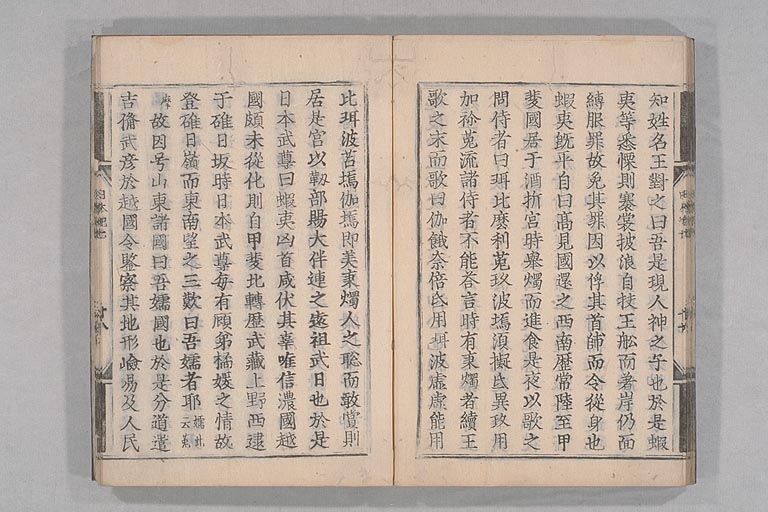 知姓名王對之曰吾是現人神之子也於是蝦
夷等悉慄則褰裳披浪自扶王舩而著岸仍而
縛服罪故免其罪因以俘其首帥而令從身也
蝦夷既平自曰髙見國還之西南歷常陸至甲
斐國居于酒折宮時舉燭而進食是夜以歌之
問侍者曰珥比麽利菟玖波塢須擬氐異玖用
加祢菟流諸侍者不能荅言時有秉燭者續王
歌之末而歌曰伽餓奈倍氐用珥波虛虛能用
比珥波苔塢伽塢即美秉燭人之聡而敢賞則
居是宮以靱部賜大伴連之遠祖武日也於是
日本武尊曰蝦夷凶首咸伏其辜唯信濃國越
國頗未從化則自甲斐北轉歷武藏上野西逮
于碓日坂時日本武尊每有顧弟橘媛之情故
登碓日嶺而東南望之三歎曰吾嬬者耶嬬此云菟
摩故因号山東諸國曰吾嬬國也於是分道遣
吉備武彥於越國令鑒察其地形嶮易及人民